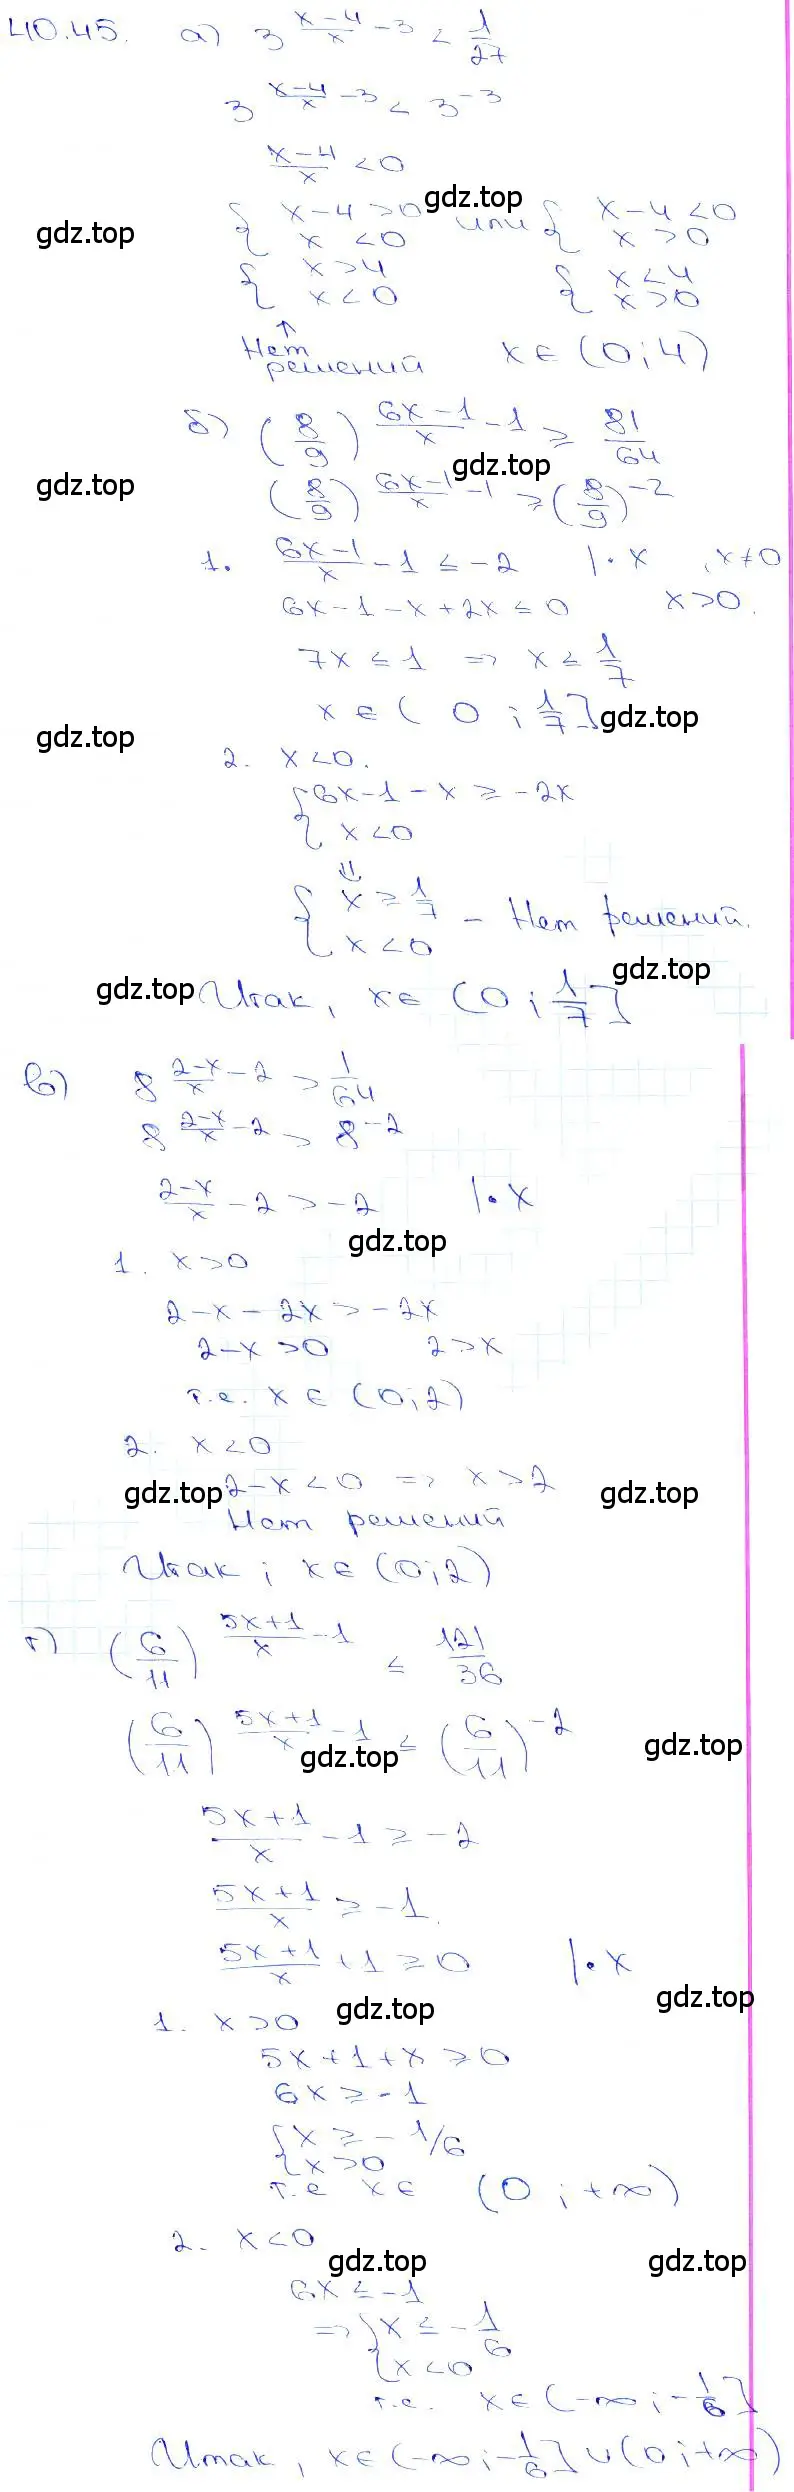 40.45. а) 3^((x-4)/x - 3) < 1/27
3^((x-4)/x - 3) < 3^(-3)
(x-4)/x < 0
gdz.top
{ x-4 > 0 или { x-4 < 0
gdz.top
{ x < 0 { x > 0
{ x > 4 { x < 4
{ x < 0 { x > 0
↑
Нет решений x ∈ (0; 4)
б) (8/9)^((6x-1)/x - 1) ≥ 81/64
gdz.top
gdz.top
(8/9)^((6x-1)/x - 1) ≥ (8/9)^(-2)
1. (6x-1)/x - 1 ≤ -2 | · x , x ≠ 0
6x - 1 - x + 2x ≤ 0 x > 0.
7x ≤ 1 => x ≤ 1/7
x ∈ (0; 1/7]
gdz.top
gdz.top
2. x < 0.
{ 6x - 1 - x ≥ -2x
{ x < 0
⇓
{ x ≥ 1/7
{ x < 0 - Нет решений.
gdz.top
gdz.top
Итак, x ∈ (0; 1/7]
в) 8^((2-x)/x - 2) > 1/64
8^((2-x)/x - 2) > 8^(-2)
(2-x)/x - 2 > -2 | · x
gdz.top
1. x > 0
2 - x - 2x > -2x
2 - x > 0 2 > x
т.е. x ∈ (0; 2)
2. x < 0
2 - x < 0 => x > 2
gdz.top
gdz.top
Нет решений
Итак; x ∈ (0; 2)
г) (6/11)^((5x+1)/x - 1) ≤ 121/36
(6/11)^((5x+1)/x - 1) ≤ (6/11)^(-2)
gdz.top
gdz.top
(5x+1)/x - 1 ≥ -2
(5x+1)/x ≥ -1.
(5x+1)/x + 1 ≥ 0 | · x
gdz.top
gdz.top
1. x > 0
5x + 1 + x ≥ 0
6x ≥ -1
{ x ≥ -1/6
{ x > 0
т.е x ∈ (0; +∞)
2. x < 0
gdz.top
gdz.top
6x ≤ -1
=> { x ≤ -1/6
{ x < 0
т.е. x ∈ (-∞; -1/6]
Итак, x ∈ (-∞; -1/6] ∪ (0; +∞)